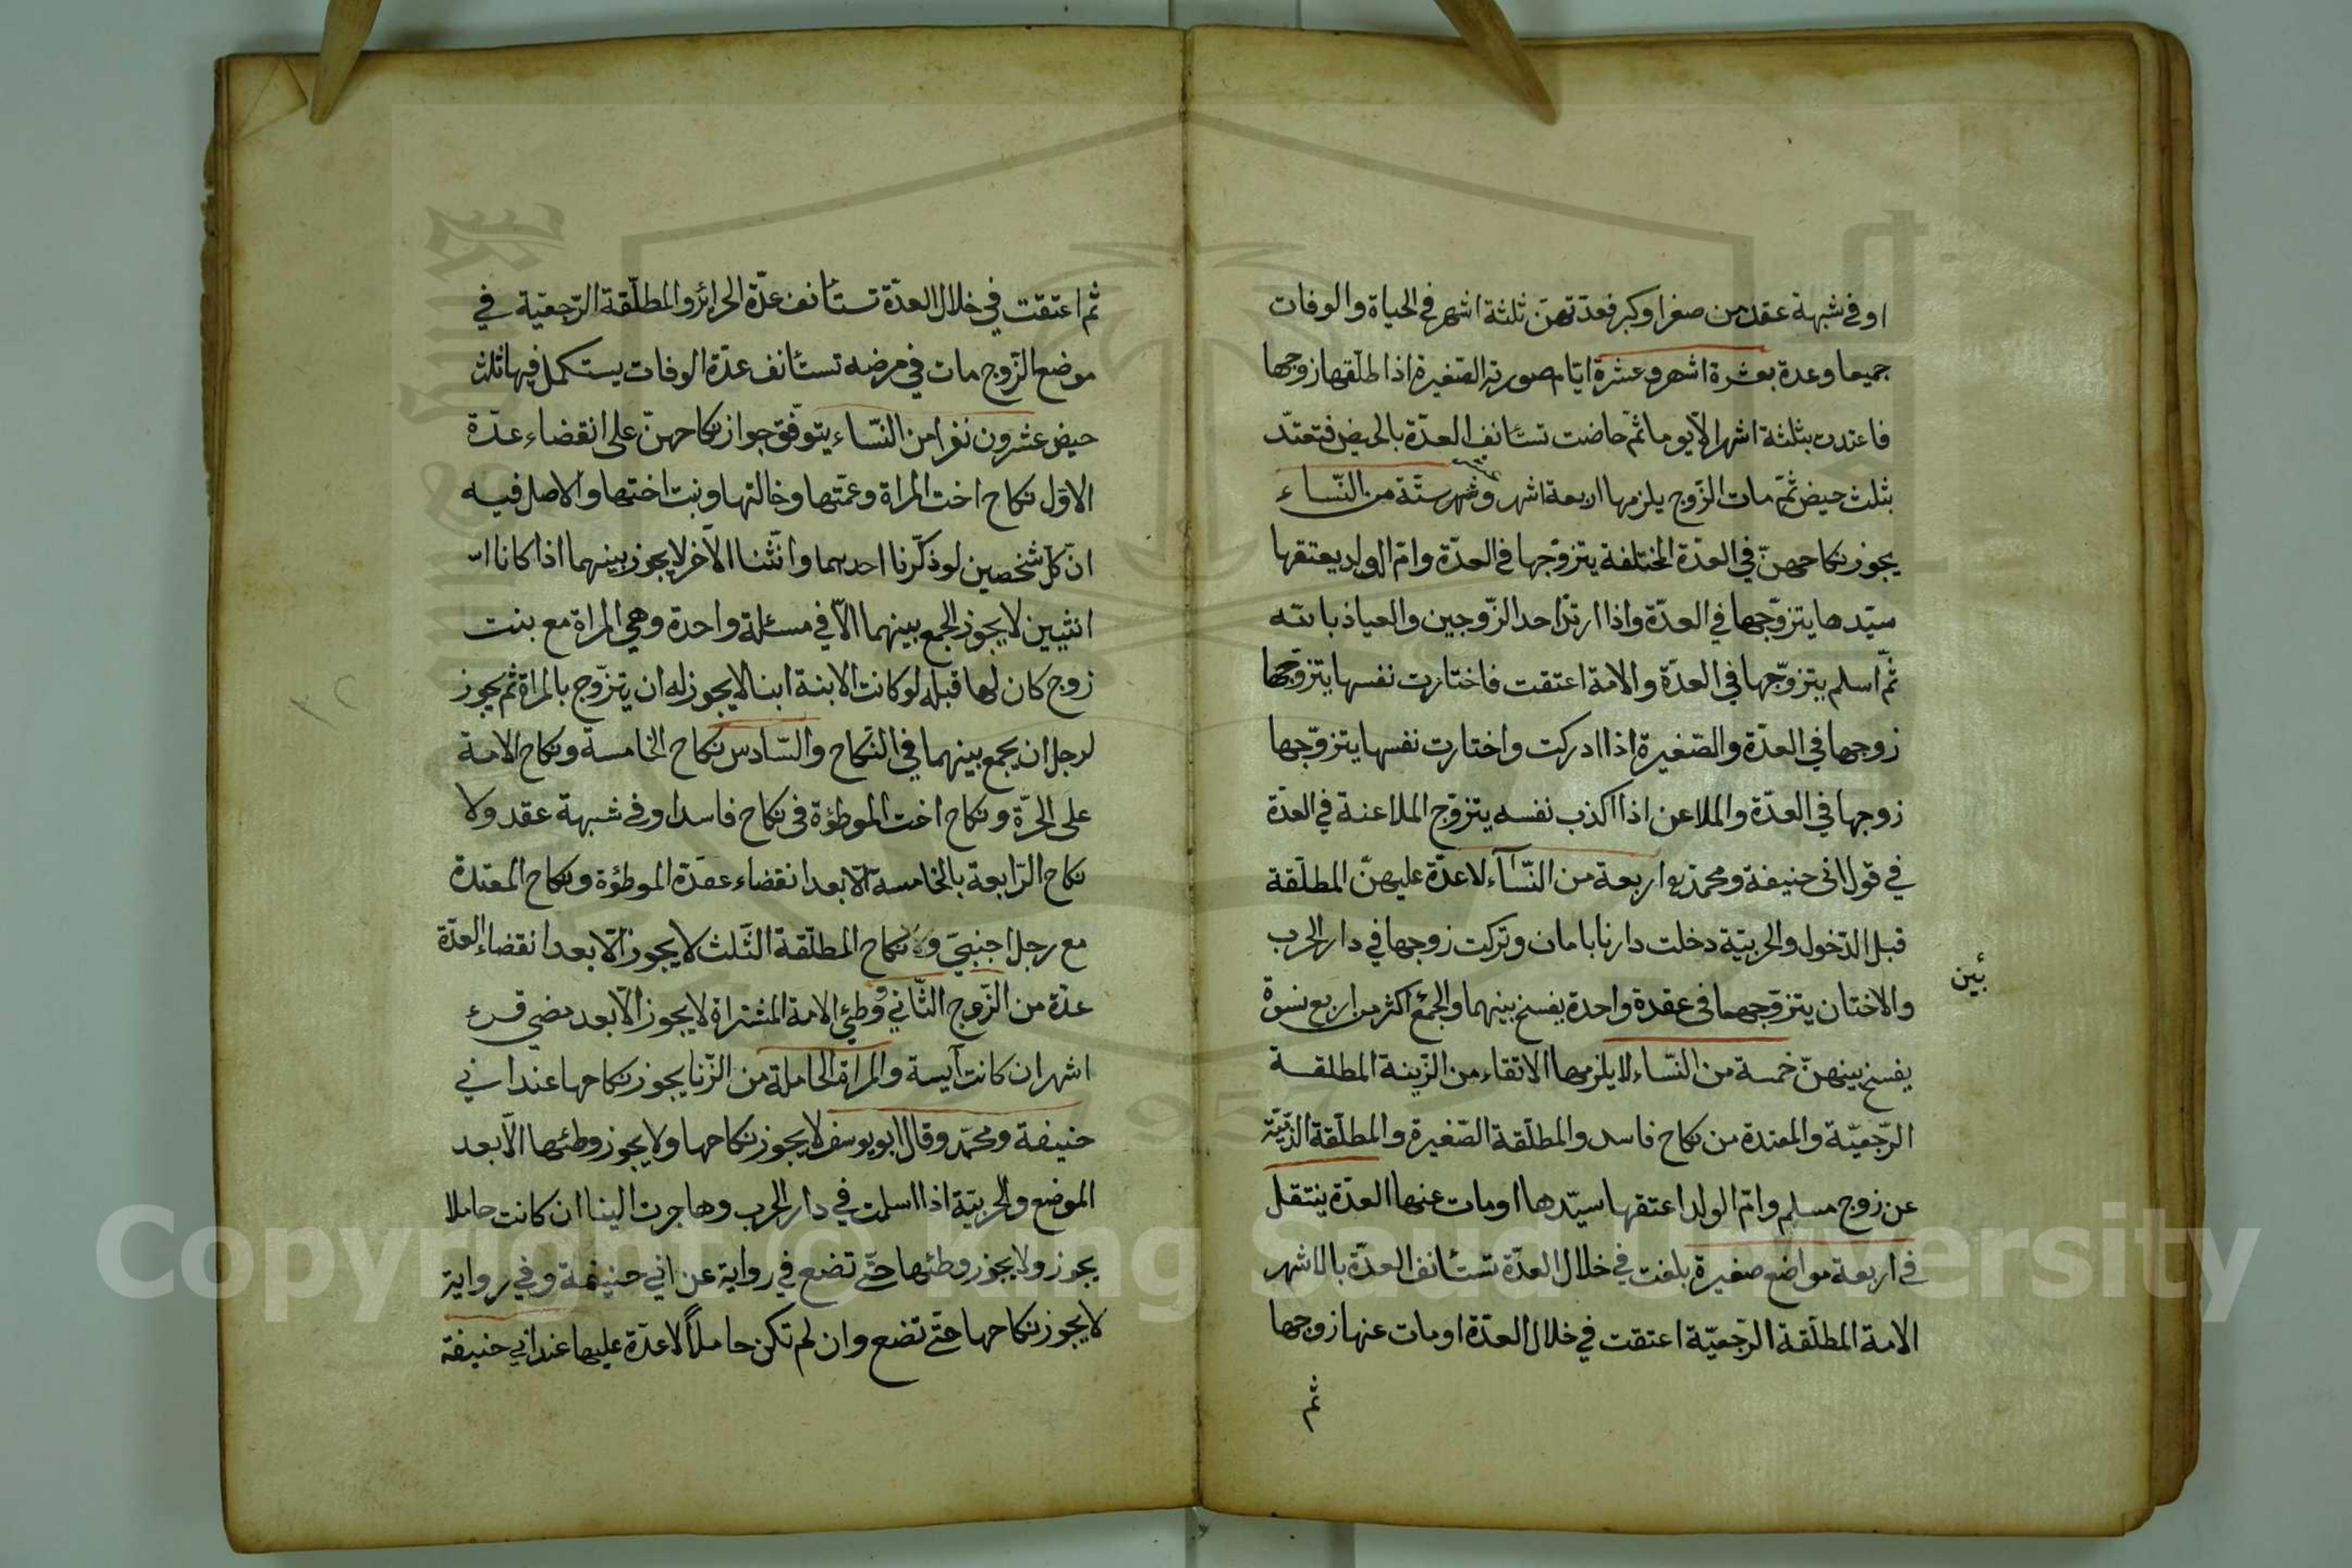 او في شبهة عقد من صغر او كبر فعدتهن ثلثة اشهر في الحياة والوفات
جميعا وعدة بعشرة اشهر وعشرة ايام صورته الصغيرة اذا طلقها زوجها
فاعتدت بثلثة اشهر الا يوما ثم حاضت تستأنف العدة بالحيض فتعتد
بثلث حيض ثم مات الزوج يلزمها اربعة اشهر وشهر ستة من النساء
يجوز نكاحهن في العدة المختلفة يتزوجها في العدة وام الولد يعتقها
سيدها يتزوجها في العدة واذا ارتد احد الزوجين والعياذ بالله
ثم اسلم يتزوجها في العدة والامة اعتقت فاختارت نفسها يتزوجها
زوجها في العدة والصغيرة اذا ادركت واختارت نفسها يتزوجها
زوجها في العدة والملاعن اذا اكذب نفسه يتزوج الملاعنة في العدة
في قول ابي حنيفة ومحمد اربعة من النساء لا عدة عليهن المطلقة
قبل الدخول والحربية دخلت دارنا بامان وتركت زوجها في دار الحرب
والاختان يتزوجهما في عقدة واحدة يفسخ بينهما والجمع اكثر من اربع نسوة
بين
يفسخ بينهن خمسة من النساء لا يلزمها الاتقاء من الزينة المطلقة
الرجعية والمعتدة من نكاح فاسد والمطلقة الصغيرة والمطلقة الذمية
عن زوج مسلم وام الولد اعتقها سيدها او مات عنها العدة ينتقل
في اربعة مواضع صغيرة بلغت في خلال العدة تستأنف العدة بالاشهر
الامة المطلقة الرجعية اعتقت في خلال العدة او مات عنها زوجها
ثم
ثم اعتقت في خلال العدة تستأنف عدة الحرائر والمطلقة الرجعية في
موضع الزوج مات في مرضه تستأنف عدة الوفات يستكمل فيها ثلث
حيض عشرون نفرا من النساء يتوقف جواز نكاحهن على انقضاء عدة
الاول نكاح اخت المراة وعمتها وخالتها وبنت اختها والاصل فيه
ان كل شخصين لو ذكرنا احدهما وانثنا الآخر لا يجوز بينهما اذا كانا
انثيين لا يجوز الجمع بينهما الا في مسئلة واحدة وهي المراة مع بنت
زوج كان لها قبله لو كانت الابنة ابنا لا يجوز له ان يتزوج بالمراة ثم يجوز
لرجل ان يجمع بينهما في النكاح والسادس نكاح الخامسة ونكاح الامة
على الحرة ونكاح اخت الموطؤة في نكاح فاسد او في شبهة عقد ولا
نكاح الرابعة بالخامسة الا بعد انقضاء عقدة الموطؤة ونكاح المعتدة
مع رجل اجنبي ولا نكاح المطلقة الثلث لا يجوز الا بعد انقضاء العدة
عدة من الزوج الثاني ووطئ الامة المشتراة لا يجوز الا بعد مضي قرء
اشهر ان كانت آيسة والمراة الحاملة من الزنا يجوز نكاحها عند ابي
حنيفة ومحمد وقال ابو يوسف لا يجوز نكاحها ولا يجوز وطئها الا بعد
الموضع والحربية اذا اسلمت في دار الحرب وهاجرت الينا ان كانت حاملا
يجوز ولا يجوز وطئها حتى تضع في رواية عن ابي حنيفة وفي رواية
لا يجوز نكاحها حتى تضع وان لم تكن حاملاً لا عدة عليها عند ابي حنيفة
Copyright © King Saud University
1957